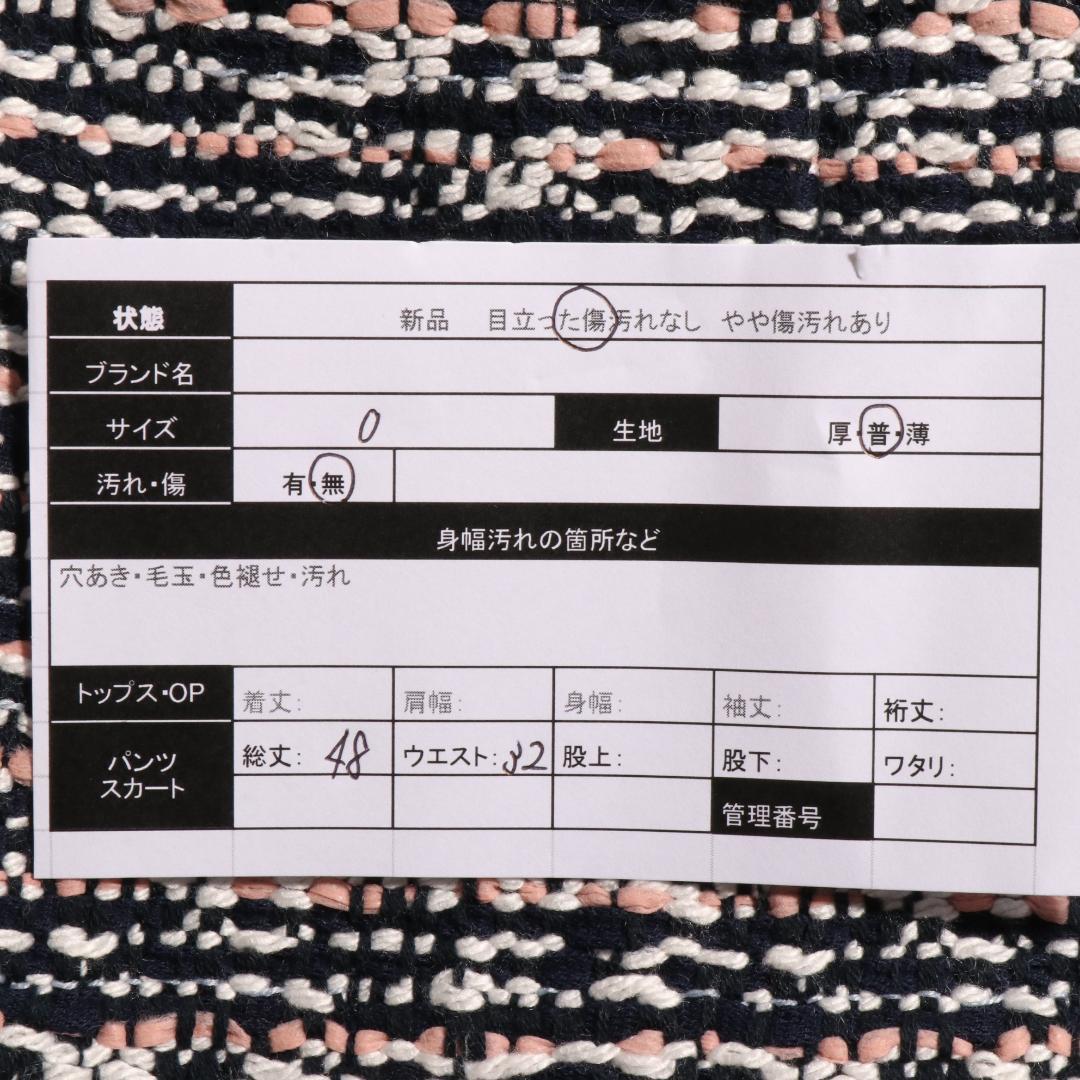 状態 新品 目立った傷汚れなし やや傷汚れあり
ブランド名
サイズ 0 生地 厚・普・薄
汚れ・傷 有・無
身幅汚れの箇所など
穴あき・毛玉・色褪せ・汚れ
トップス・OP 着丈: 肩幅: 身幅: 袖丈: 裄丈:
パンツ スカート 総丈: 48 ウエスト: 32 股上: 股下: ワタリ:
管理番号